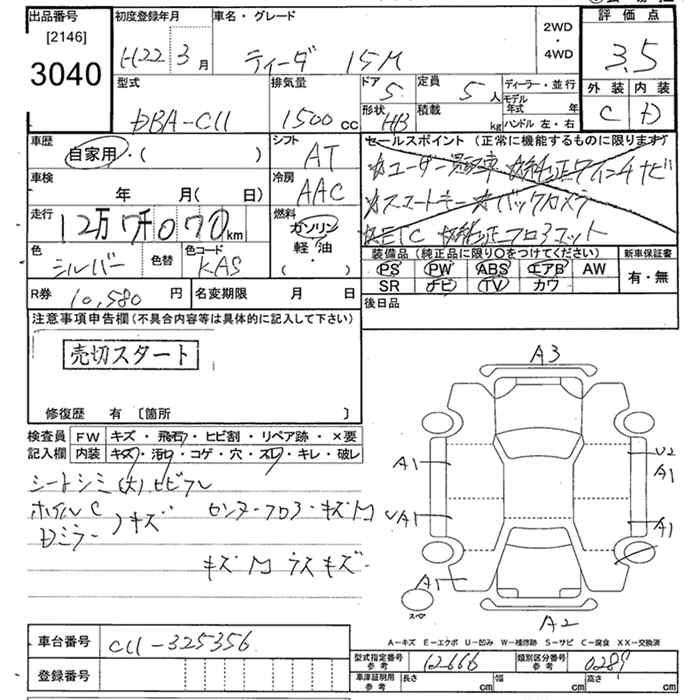 出品番号
[2146]
3040
初度登録年月
H22年 3月
車名・グレード
ティーダ 15M
2WD
・
4WD
評価点
3.5
外装 内装
C D
型式
DBA-C11
排気量
1500cc
ドア
5
定員
5人
形状
HB
積載
kg
ディーラー・並行
モデル年式 年
ハンドル 左・右
車歴
自家用・( )
シフト
AT
セールスポイント (正常に機能するものに限ります)
☆ユーザー買取車 ☆純正ワイドナビ
☆スマートキー ☆バックカメラ
☆ETC ☆純正フロアマット
車検
年 月( 日)
冷房
AAC
走行
12万7千070km
燃料
ガソリン
軽油
・
( )
色
シルバー
色替
色コード
KAS
装備品 (純正品に限り○をつけてください)
PS PW ABS エアB AW
SR ナビ TV カワ
新車保証書
有・無
R券
10,580円
名変期限 月 日
後日品
注意事項申告欄 (不具合内容等は具体的に記入して下さい)
売切スタート
修復歴 有 〔箇所 〕
検査員記入欄
FW キズ・飛石・ヒビ割・リペア跡・×要
内装 キズ・汚れ・コゲ・穴・スレ・キレ・破レ
シートシミ(大)ヒビワレ
ホイルC
Dミラー
キズ
センターフロア・キズM
キズM ラスキズ
A3
A1
U2
A1
UA1
A1
A1
スペア
A2
A-キズ E-エクボ U-凹み W-補修跡 S-サビ C-腐食 XX-交換済
車台番号
C11-325356
登録番号
型式指定番号 参考
12666
類別区分番号 参考
0289
車庫証明用 参考
長さ cm
幅 cm
高さ cm